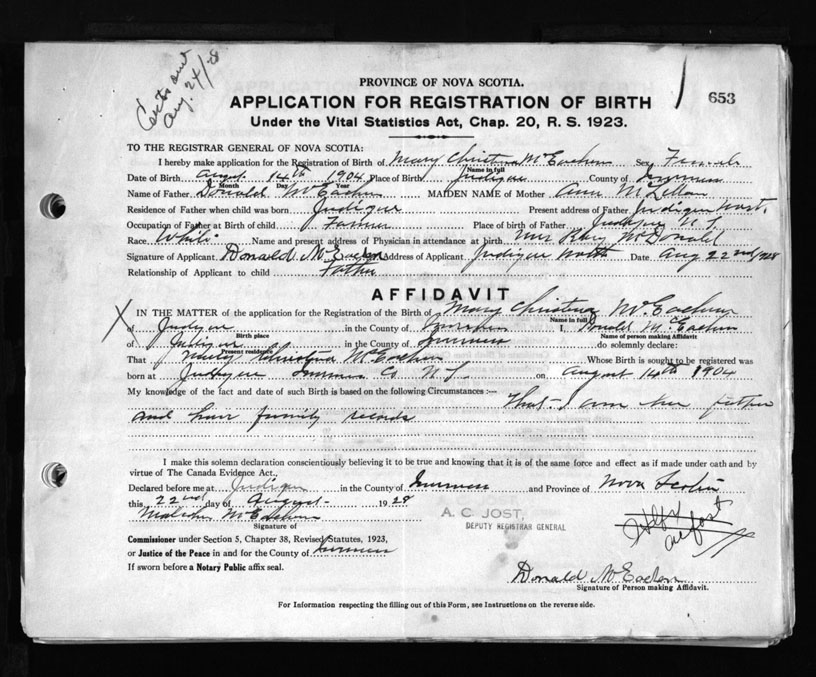 Certs out
Aug. 24/28
PROVINCE OF NOVA SCOTIA.
653
APPLICATION FOR REGISTRATION OF BIRTH
Under the Vital Statistics Act, Chap. 20, R. S. 1923.
TO THE REGISTRAR GENERAL OF NOVA SCOTIA:
I hereby make application for the Registration of Birth of Mary Christina McEachern Sex Female
Name in full
Date of Birth August 14th 1904 Place of Birth Judique County of Inverness
Month Day Year
Name of Father Donald McEachern MAIDEN NAME of Mother Ann McLellan
Residence of Father when child was born Judique Present address of Father Judique North.
Occupation of Father at Birth of child Farmer Place of birth of Father Judique N. S.
Race White Name and present address of Physician in attendance at birth Mrs McDonald
Signature of Applicant Donald McEachern Address of Applicant Judique North Date Aug 22nd 1928
Relationship of Applicant to child Father
AFFIDAVIT
IN THE MATTER of the application for the Registration of the Birth of Mary Christina McEachern
Name in full
of Judique in the County of Inverness I, Donald McEachern
Birth place Name of person making Affidavit
of Judique in the County of Inverness do solemnly declare:
Present residence
That Mary Christina McEachern Whose Birth is sought to be registered was
born at Judique Inverness Co N.S. on August 14th 1904
My knowledge of the fact and date of such Birth is based on the following Circumstances :— That I am her father
and have family records
I make this solemn declaration conscientiously believing it to be true and knowing that it is of the same force and effect as if made under oath and by
virtue of The Canada Evidence Act.,
Declared before me at Judique in the County of Inverness and Province of Nova Scotia
this 22nd day of August 1928
Malcolm McEachern
Signature of
A. C. JOST,
DEPUTY REGISTRAR GENERAL
Commissioner under Section 5, Chapter 38, Revised Statutes, 1923,
or Justice of the Peace in and for the County of Inverness
If sworn before a Notary Public affix seal.
Donald McEachern
Signature of Person making Affidavit.
For Information respecting the filling out of this Form, see Instructions on the reverse side.